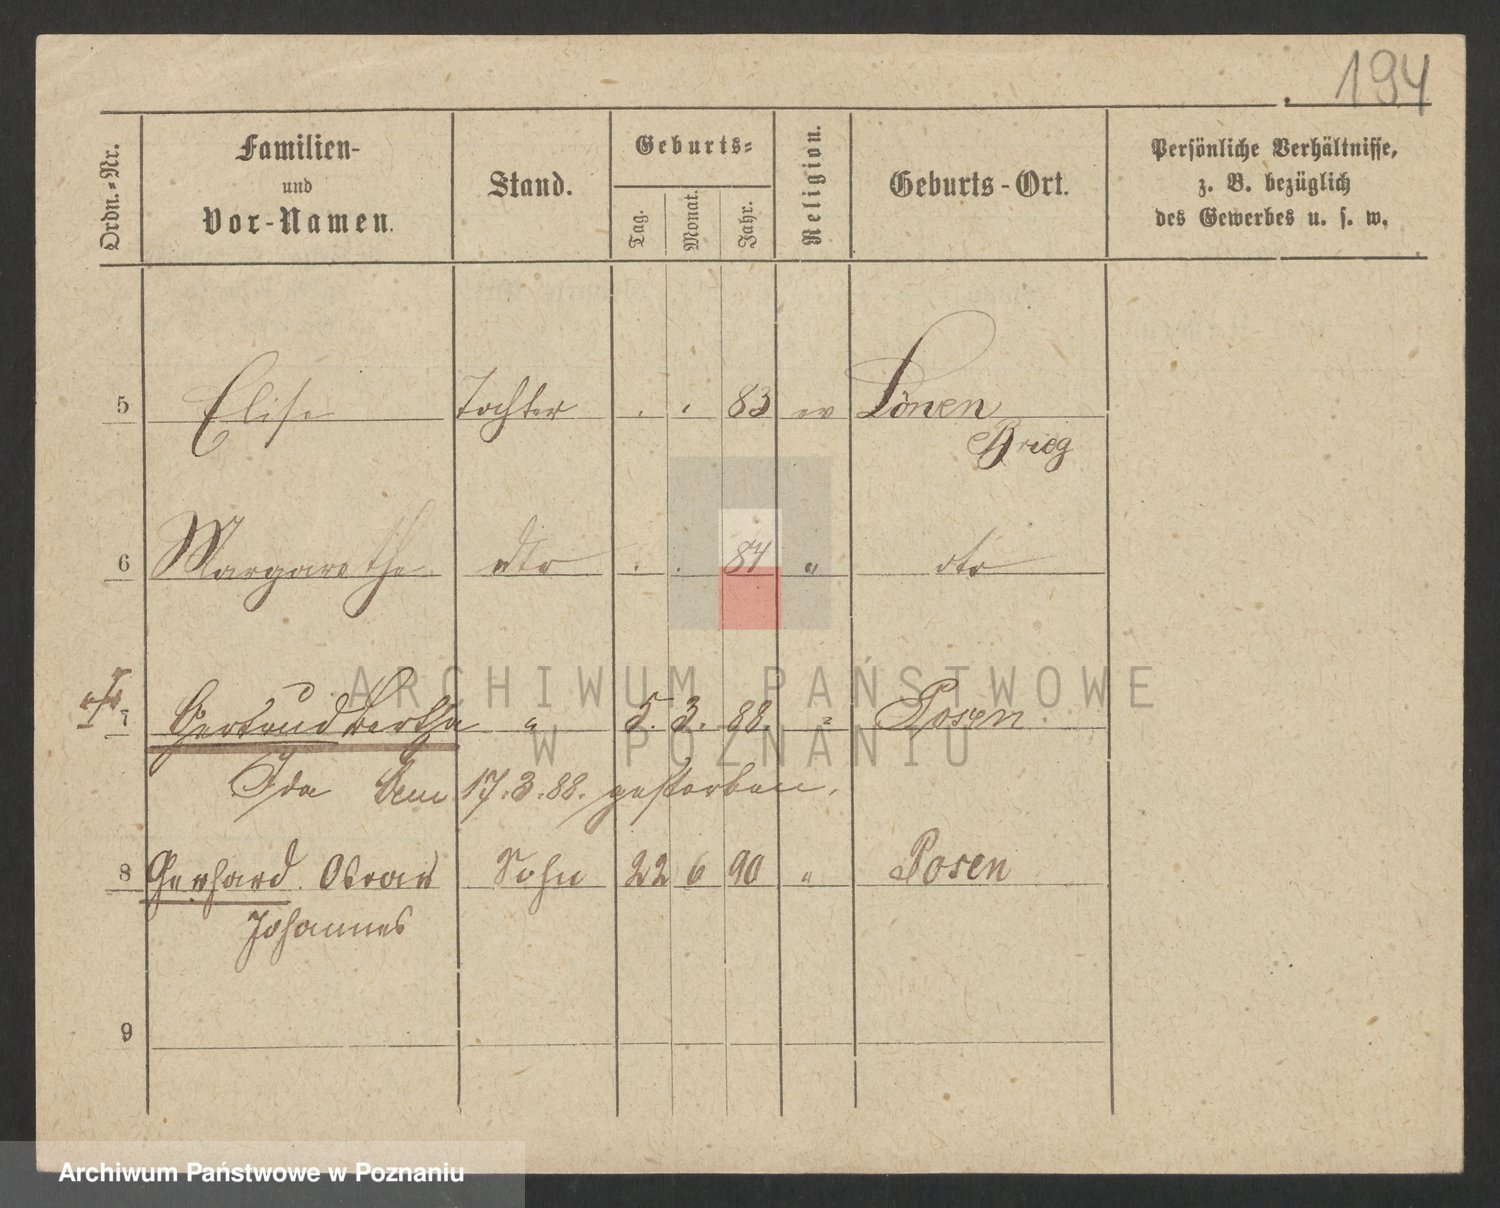 194
Ordn.-Nr. Familien- und Vor-Namen. Stand. Geburts- Tag. Monat. Jahr. Religion. Geburts-Ort. Persönliche Verhältnisse, z. B. bezüglich des Gewerbes u. s. w.
5 Elise Tochter . . 83 ev Lönen
Brieg
6 Margarethe dto . . 84 " dto
7 Gertrud Bertha " 5. 3. 88. " Posen.
Ida Am 17.3.88. gestorben.
8 Gerhard Oscar Sohn 22 6 90 " Posen
Johannes
9
ARCHIWUM PAŃSTWOWE
W POZNANIU
Archiwum Państwowe w Poznaniu